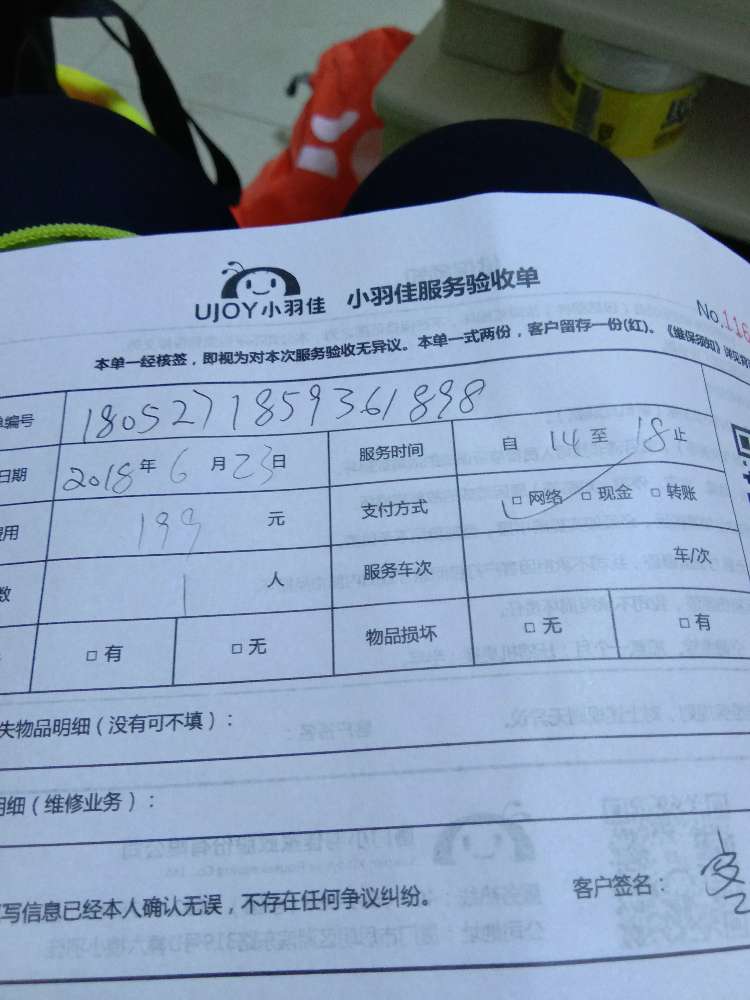 UJOY小羽佳 小羽佳服务验收单
No.116
本单一经核签，即视为对本次服务验收无异议。本单一式两份，客户留存一份(红)。《维保须知》详见背
单编号 1805271859361898
日期 2018年6月23日 服务时间 自 14 至 18 止
费用 199 元 支付方式 □网络 □现金 □转账
数 1 人 服务车次 车/次
□有 □无 物品损坏 □无 □有
失物品明细（没有可不填）：
明细（维修业务）：
写信息已经本人确认无误，不存在任何争议纠纷。 客户签名：